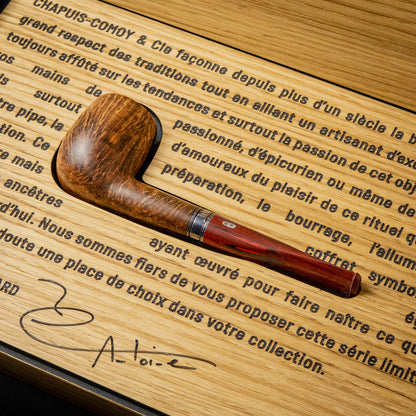 CHAPUIS-COMOY & Cie façonne depuis plus d'un siècle la
grand respect des traditions tout en alliant un artisanat d'ex
toujours affûté sur les tendances et surtout la passion de cet obj
mains de passionné, d'épicurien ou même de
surtout d'amoureux du plaisir de ce rituel q
tre pipe, la préparation, le bourrage, l'allum
tion. Ce coffret symbo
mais ayant œuvré pour faire naître ce qu
ancêtres
d'hui. Nous sommes fiers de vous proposer cette série limit
doute une place de choix dans votre collection.
ARD
Antoine